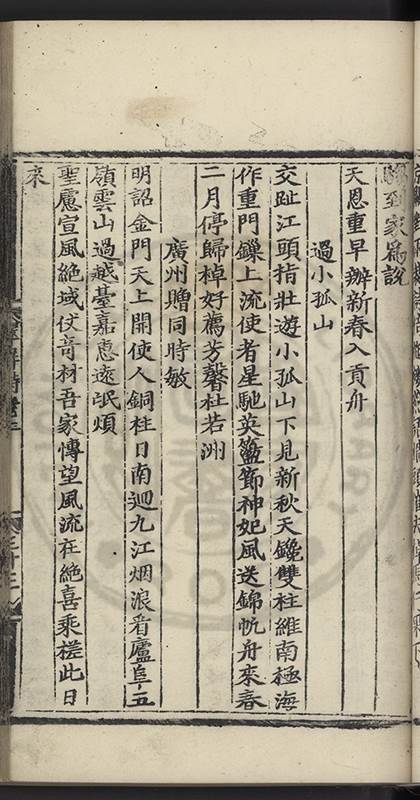 到家爲說
天恩重早辦新春入貢舟
過小孤山
交趾江頭指壯遊小孤山下見新秋天鑱雙柱維南極海
作重門鏁上流使者星馳英簜節神妃風送錦帆舟來春
二月停歸棹好薦芳馨杜若洲
廣州贈同時敏
明詔金門天上開使人銅柱日南迴九江烟浪看廬阜五
嶺雲山過越臺嘉惠遠氓煩
聖慮宣風絶域仗竒材吾家傳望風流在絶喜乘槎此日
來